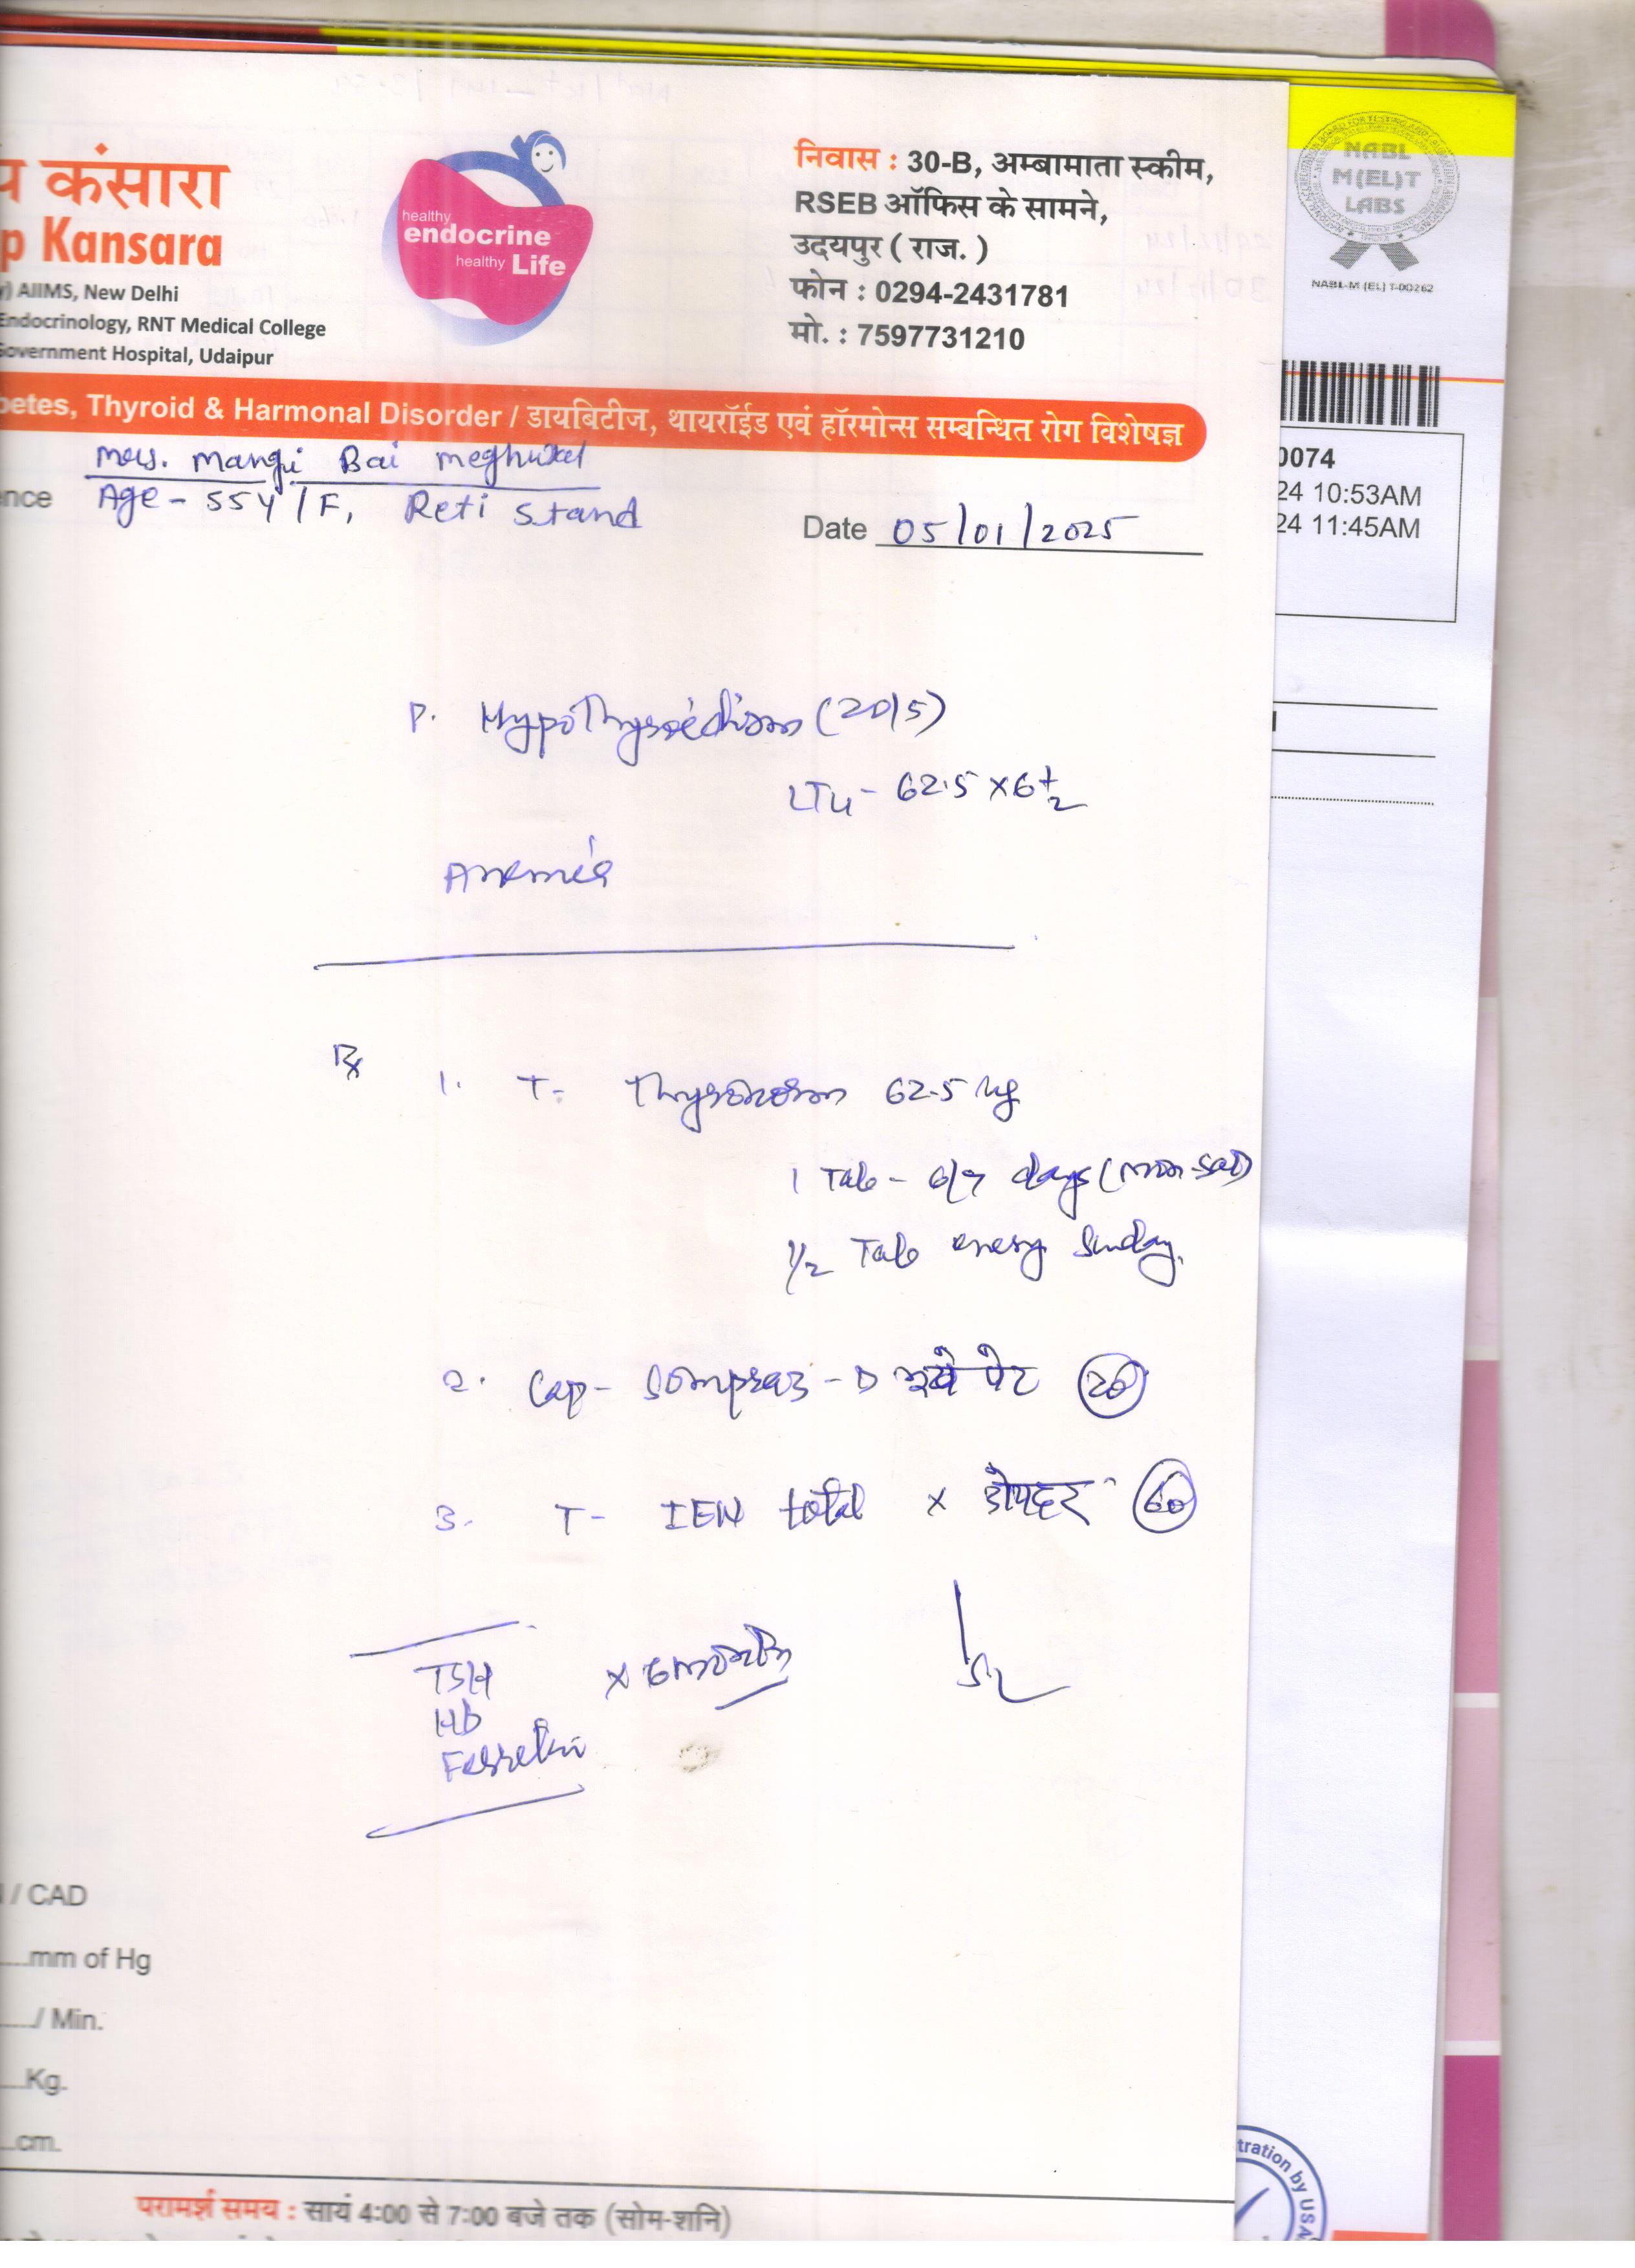 कंसारा
p Kansara
AIIMS, New Delhi
Endocrinology, RNT Medical College
Government Hospital, Udaipur
healthy
endocrine
healthy Life
निवास : 30-B, अम्बामाता स्कीम,
RSEB ऑफिस के सामने,
उदयपुर ( राज. )
फोन : 0294-2431781
मो. : 7597731210
NABL
M(EL)T
LABS
NABL-M (EL) T-00262
betes, Thyroid & Harmonal Disorder / डायबिटीज, थायरॉईड एवं हॉरमोन्स सम्बन्धित रोग विशेषज्ञ
Mrs. Mangi Bai meghwal
nce Age - 55Y/F, Reti Stand
Date 05/01/2025
0074
24 10:53AM
24 11:45AM
P. Hypothyroidism (2015)
LT4 - 62.5 x 6 + 1/2
Anemia
Rx
1. T- Thyronorm 62.5 ug
1 Tab - 6/7 days (Mon-Sat)
1/2 Tab every Sunday.
2. Cap - Sompraz - D भूखे पेट 20
3. T- total x दोपहर 60
TSH x 6 month
Hb
Ferretin
/ CAD
....mm of Hg
..../ Min.
....Kg.
...cm.
परामर्श समय : सायं 4:00 से 7:00 बजे तक (सोम-शनि)
tration by USA